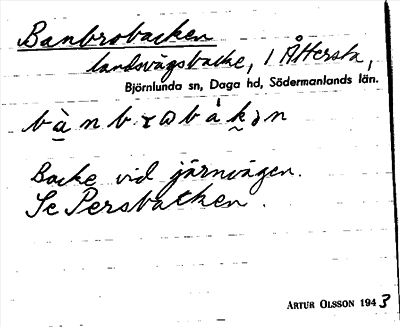 Banbrobacken
landsvägsbacke, 1 Åttersta,
Björnlunda sn, Daga hd, Södermanlands län.
Backe vid järnvägen.
Se Persbacken.
ARTUR OLSSON 1943